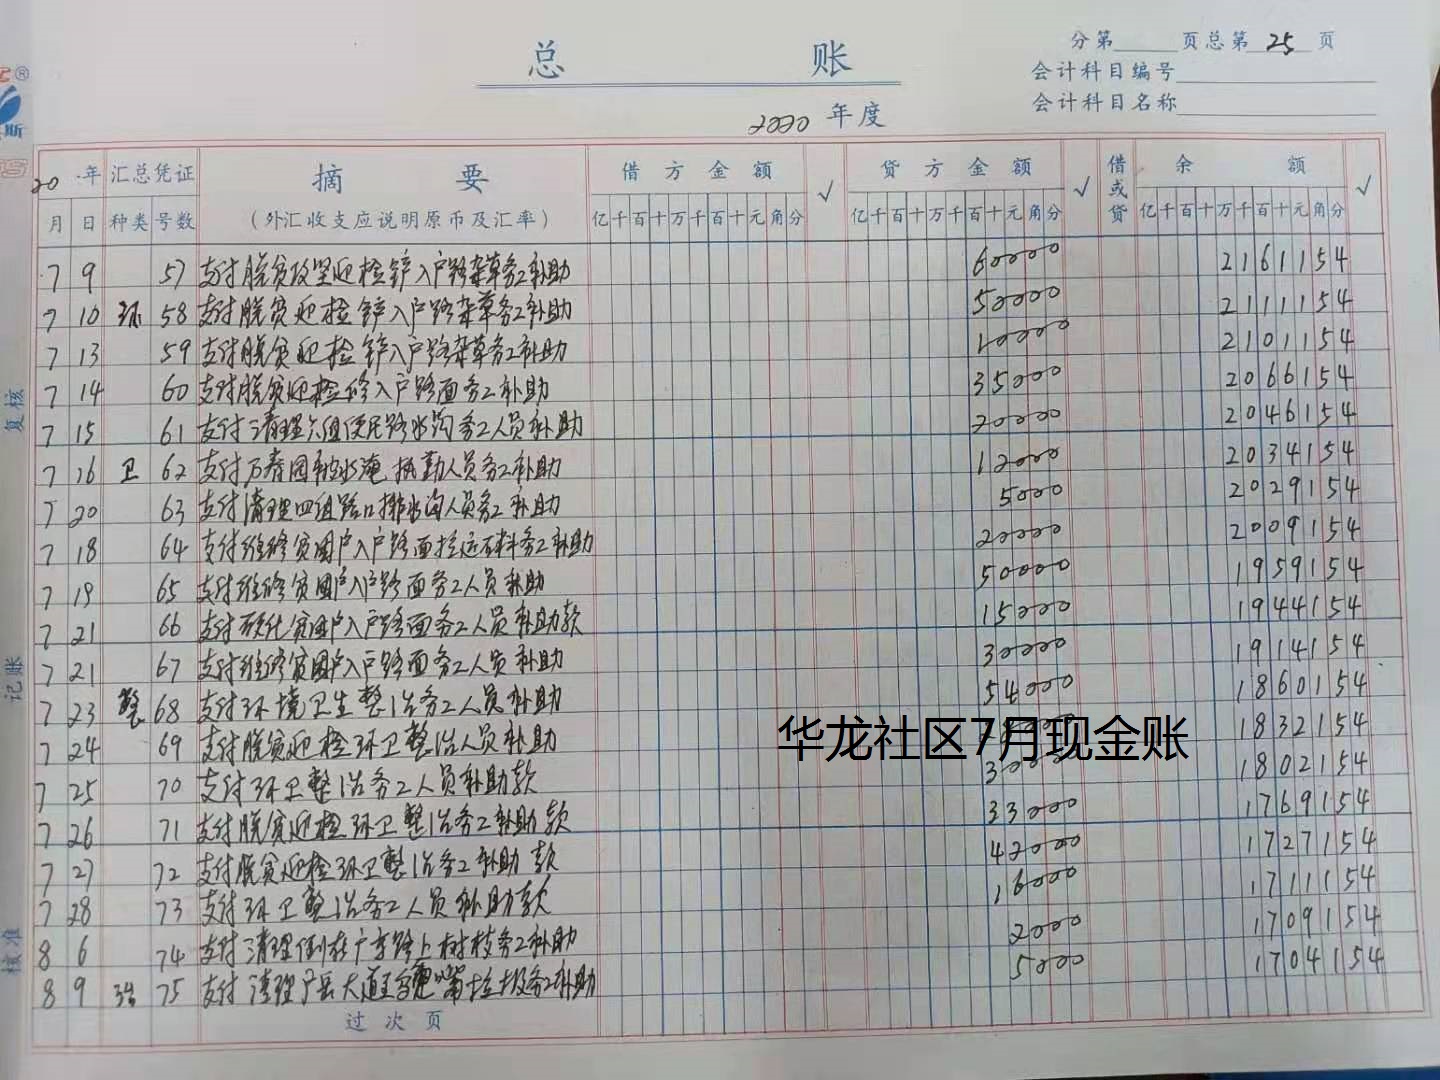 总 账
分第 页总第 25 页
会计科目编号
会计科目名称
2020 年度
20 年 汇总凭证 摘 要 借方金额 √ 贷方金额 √ 借或贷 余 额 √
月 日 种类 号数 (外汇收支应说明原币及汇率) 亿千百十万千百十元角分 亿千百十万千百十元角分 亿千百十万千百十元角分
7 9 57 支付脱贫攻坚迎检铲入户路杂草务工补助 60000 2161154
7 10 环 58 支付脱贫迎检铲入户路杂草务工补助 50000 2111154
7 13 59 支付脱贫迎检铲入户路杂草务工补助 10000 2101154
7 14 60 支付脱贫迎检修入户路面务工补助 35000 2066154
7 15 61 支付清理六组便民路水沟务工人员补助 20000 2046154
7 16 卫 62 支付万春园被水淹执勤人员务工补助 12000 2034154
7 20 63 支付清理四组路口排水沟人员务工补助 5000 2029154
7 18 64 支付维修贫困户入户路面拉运石料务工补助 20000 2009154
7 19 65 支付维修贫困户入户路面务工人员补助 50000 1959154
7 21 66 支付硬化贫困户入户路面务工人员补助款 15000 1944154
7 21 67 支付维修贫困户入户路面务工人员补助 30000 1914154
7 23 整 68 支付环境卫生整治务工人员补助 54000 1860154
7 24 69 支付脱贫迎检环卫整治人员补助 1832154
7 25 70 支付环卫整治务工人员补助款 30000 1802154
7 26 71 支付脱贫迎检环卫整治务工补助款 33000 1769154
7 27 72 支付脱贫迎检环卫整治务工补助款 42000 1727154
7 28 73 支付环卫整治务工人员补助款 16000 1711154
8 6 74 支付清理倒在广李路上树枝务工补助 2000 1709154
8 9 治 75 支付清理广岳大道 垃圾务工补助 5000 1704154
过次页
华龙社区7月现金账
复核
记账
核准
斯